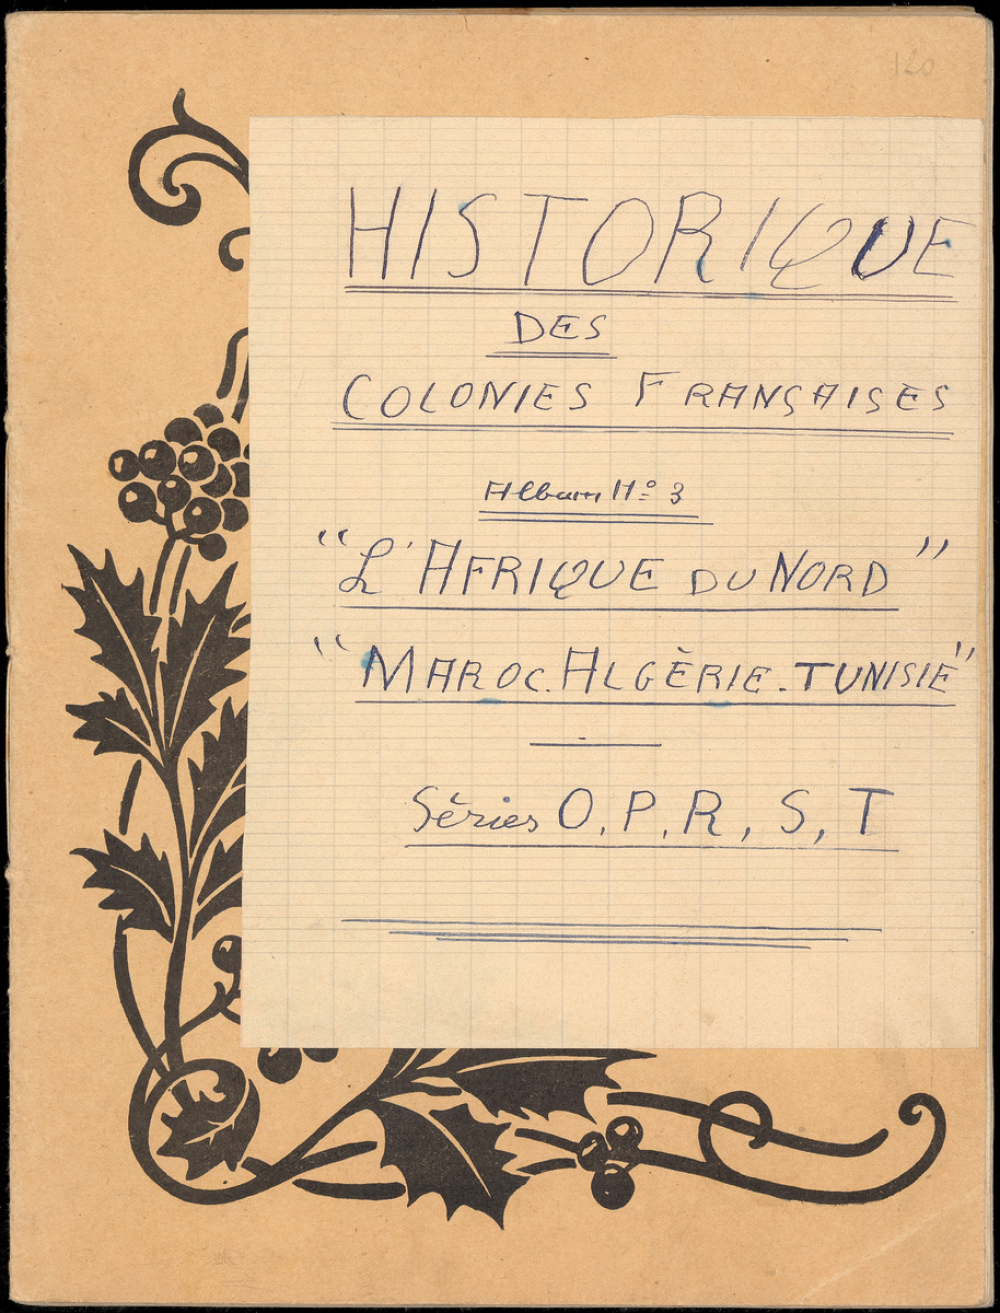 120
HISTORIQUE
DES
COLONIES FRANÇAISES
Album N° 3
"L'AFRIQUE DU NORD"
"MAROC. ALGÈRIE. TUNISIE"
Séries O, P, R, S, T